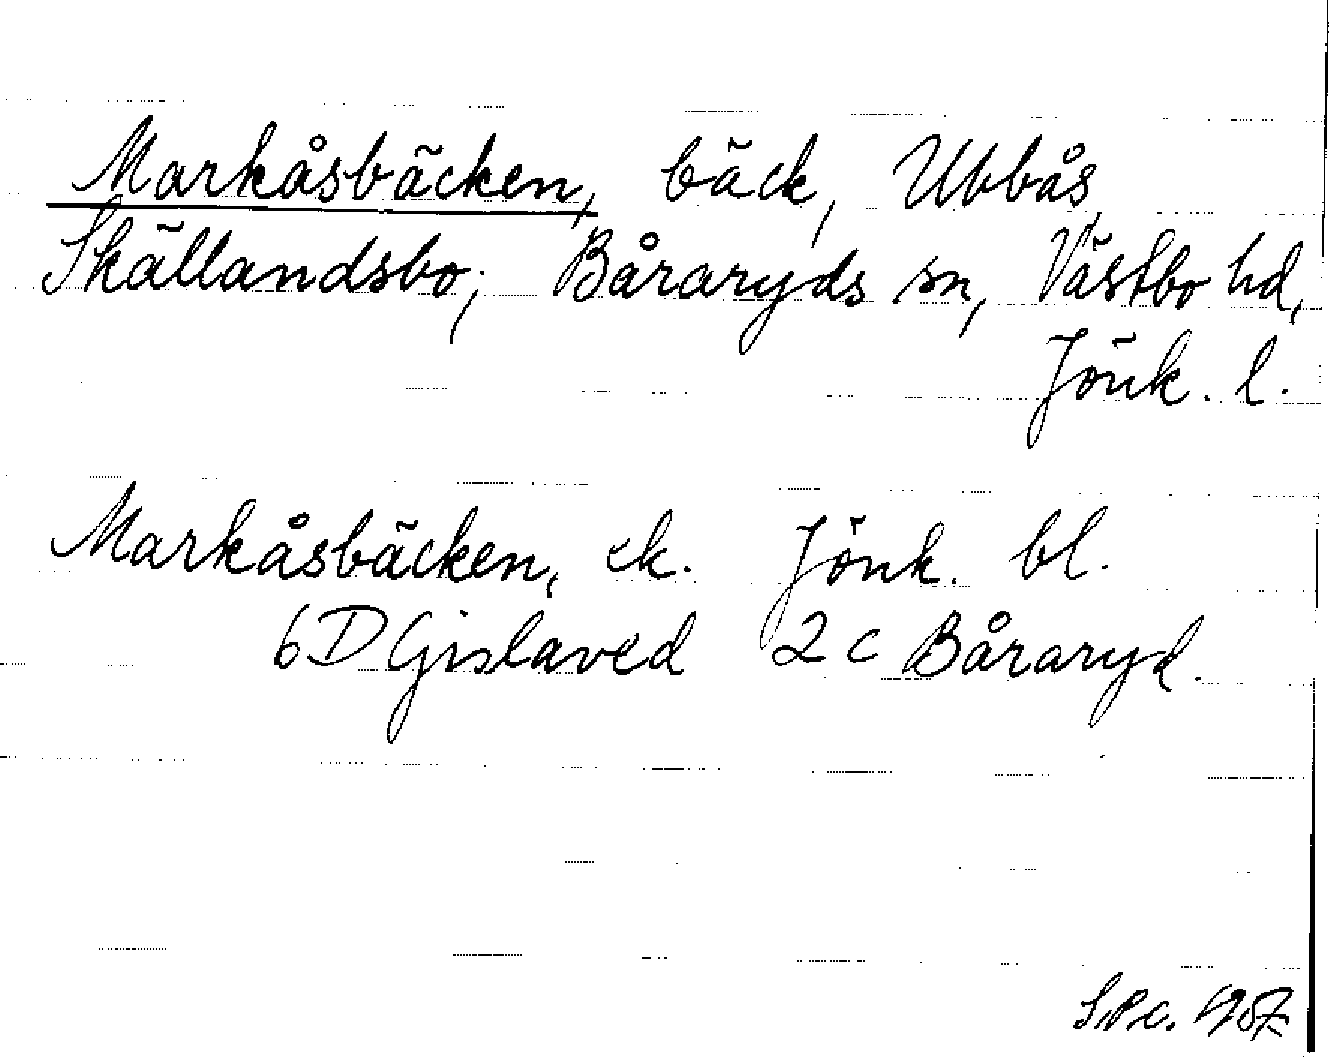 Markåsbäcken, bäck, Ubbås,
Skällandsbo; Båraryds sn, Västbo hd,
Jönk. l.
Markåsbäcken, ek. Jönk. bl.
6D Gislaved 2c Båraryd.